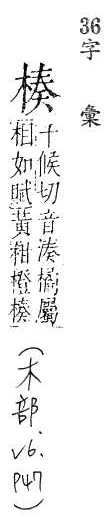 36字彙
楱
千候切音湊橘屬
相如賦黃柑橙楱
(木部. v6. p47)